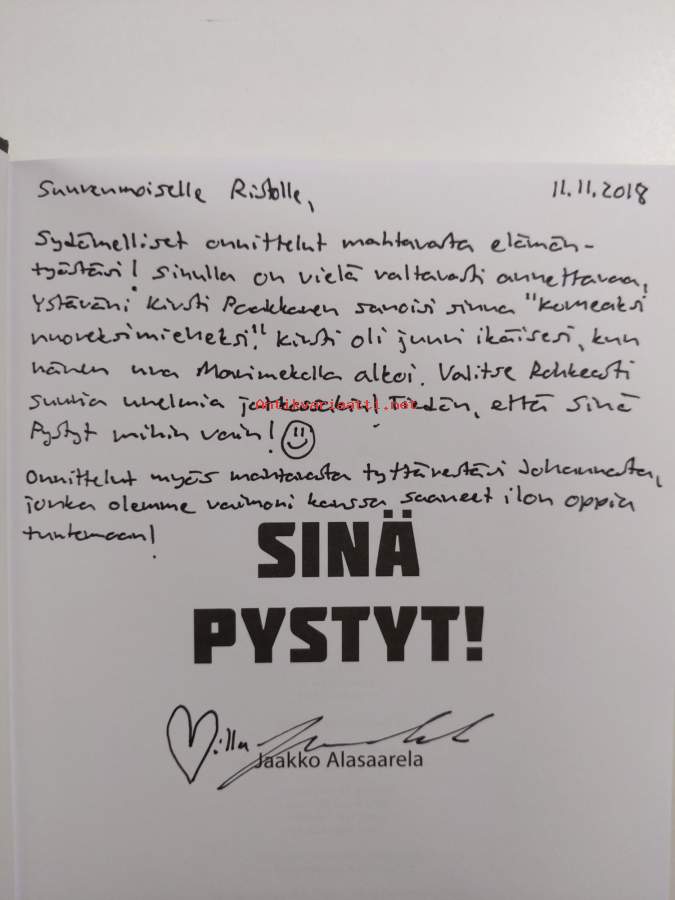 Suurenmoiselle Ristolle, 11.11.2018
Sydämelliset onnittelut mahtavasta elämän-
työstäsi! Sinulla on vielä valtavasti annettavaa,
Ystäväni Kirsti Paakkanen sanoisi sinua "komeaksi
nuoreksimieheksi." Kirsti oli juuri ikäisesi, kun
hänen ura Marimekolla alkoi. Valitse Rohkeasti
suuria unelmia Tiedän, että Sinä
Antikvariaatti.net
Pystyt mihin vain!
Onnittelut myös mahtavasta tyttärestäsi Johannasta,
jonka olemme vaimoni kanssa saaneet ilon oppia
tuntemaan!
SINÄ
PYSTYT!
:illa
Jaakko Alasaarela